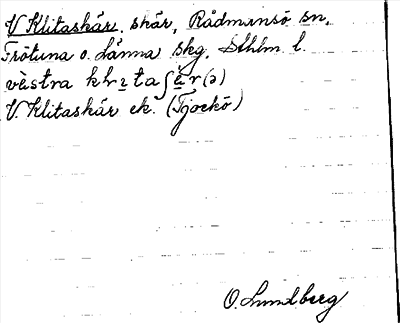 V Klitaskär, skär, Rådmansö sn,
Frötuna o. Länna skg, Sthlm l.
västra klitaʃär(ə)
V. Klitaskär ek. (Tjockö)
O. Lundberg